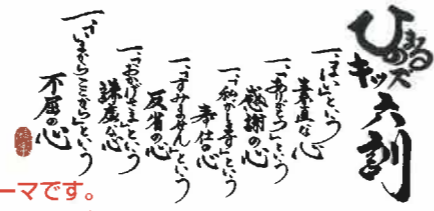 ひのまる
キッズ
六訓
一、「はい」という
素直な心
一、「ありがとう」という
感謝の心
一、「私がします」という
奉仕の心
一、「すみません」という
反省の心
一、「おかげさま」という
謙虚な心
一、「いまからここから」という
不屈の心
ーマです。